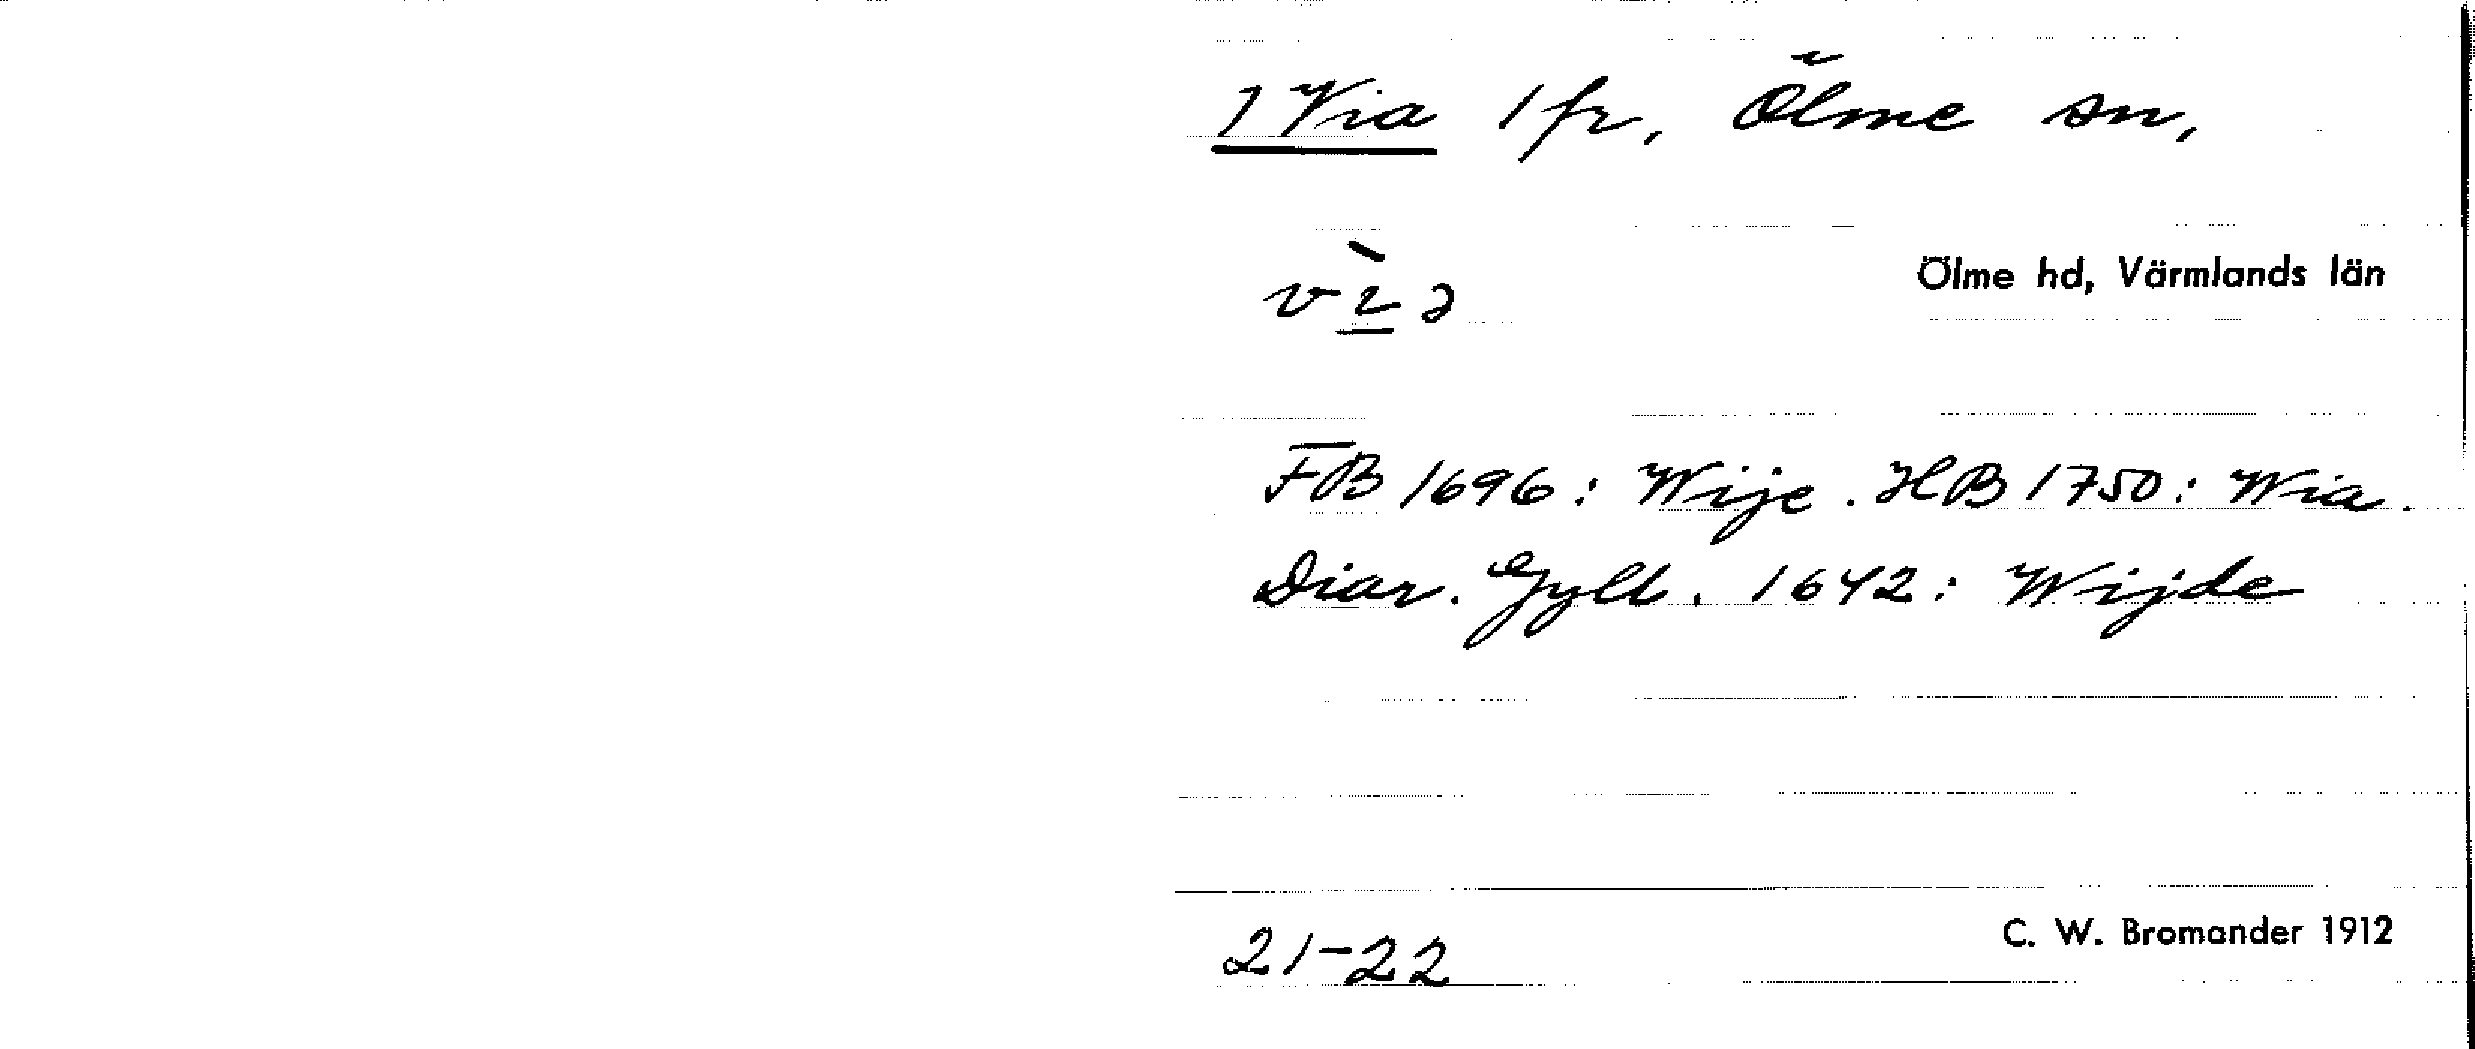 1 Via 1 fr, Ölme sn,
Ölme hd, Värmlands län
FB 1696: Wije. HB 1750: Wia.
Diar. Gyll. 1642: Wijde
C. W. Bromander 1912
21-22